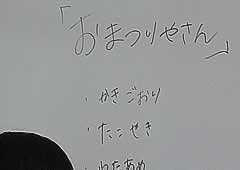 「おまつりやさん」
・かきごおり
・たこせき
・わたあめ